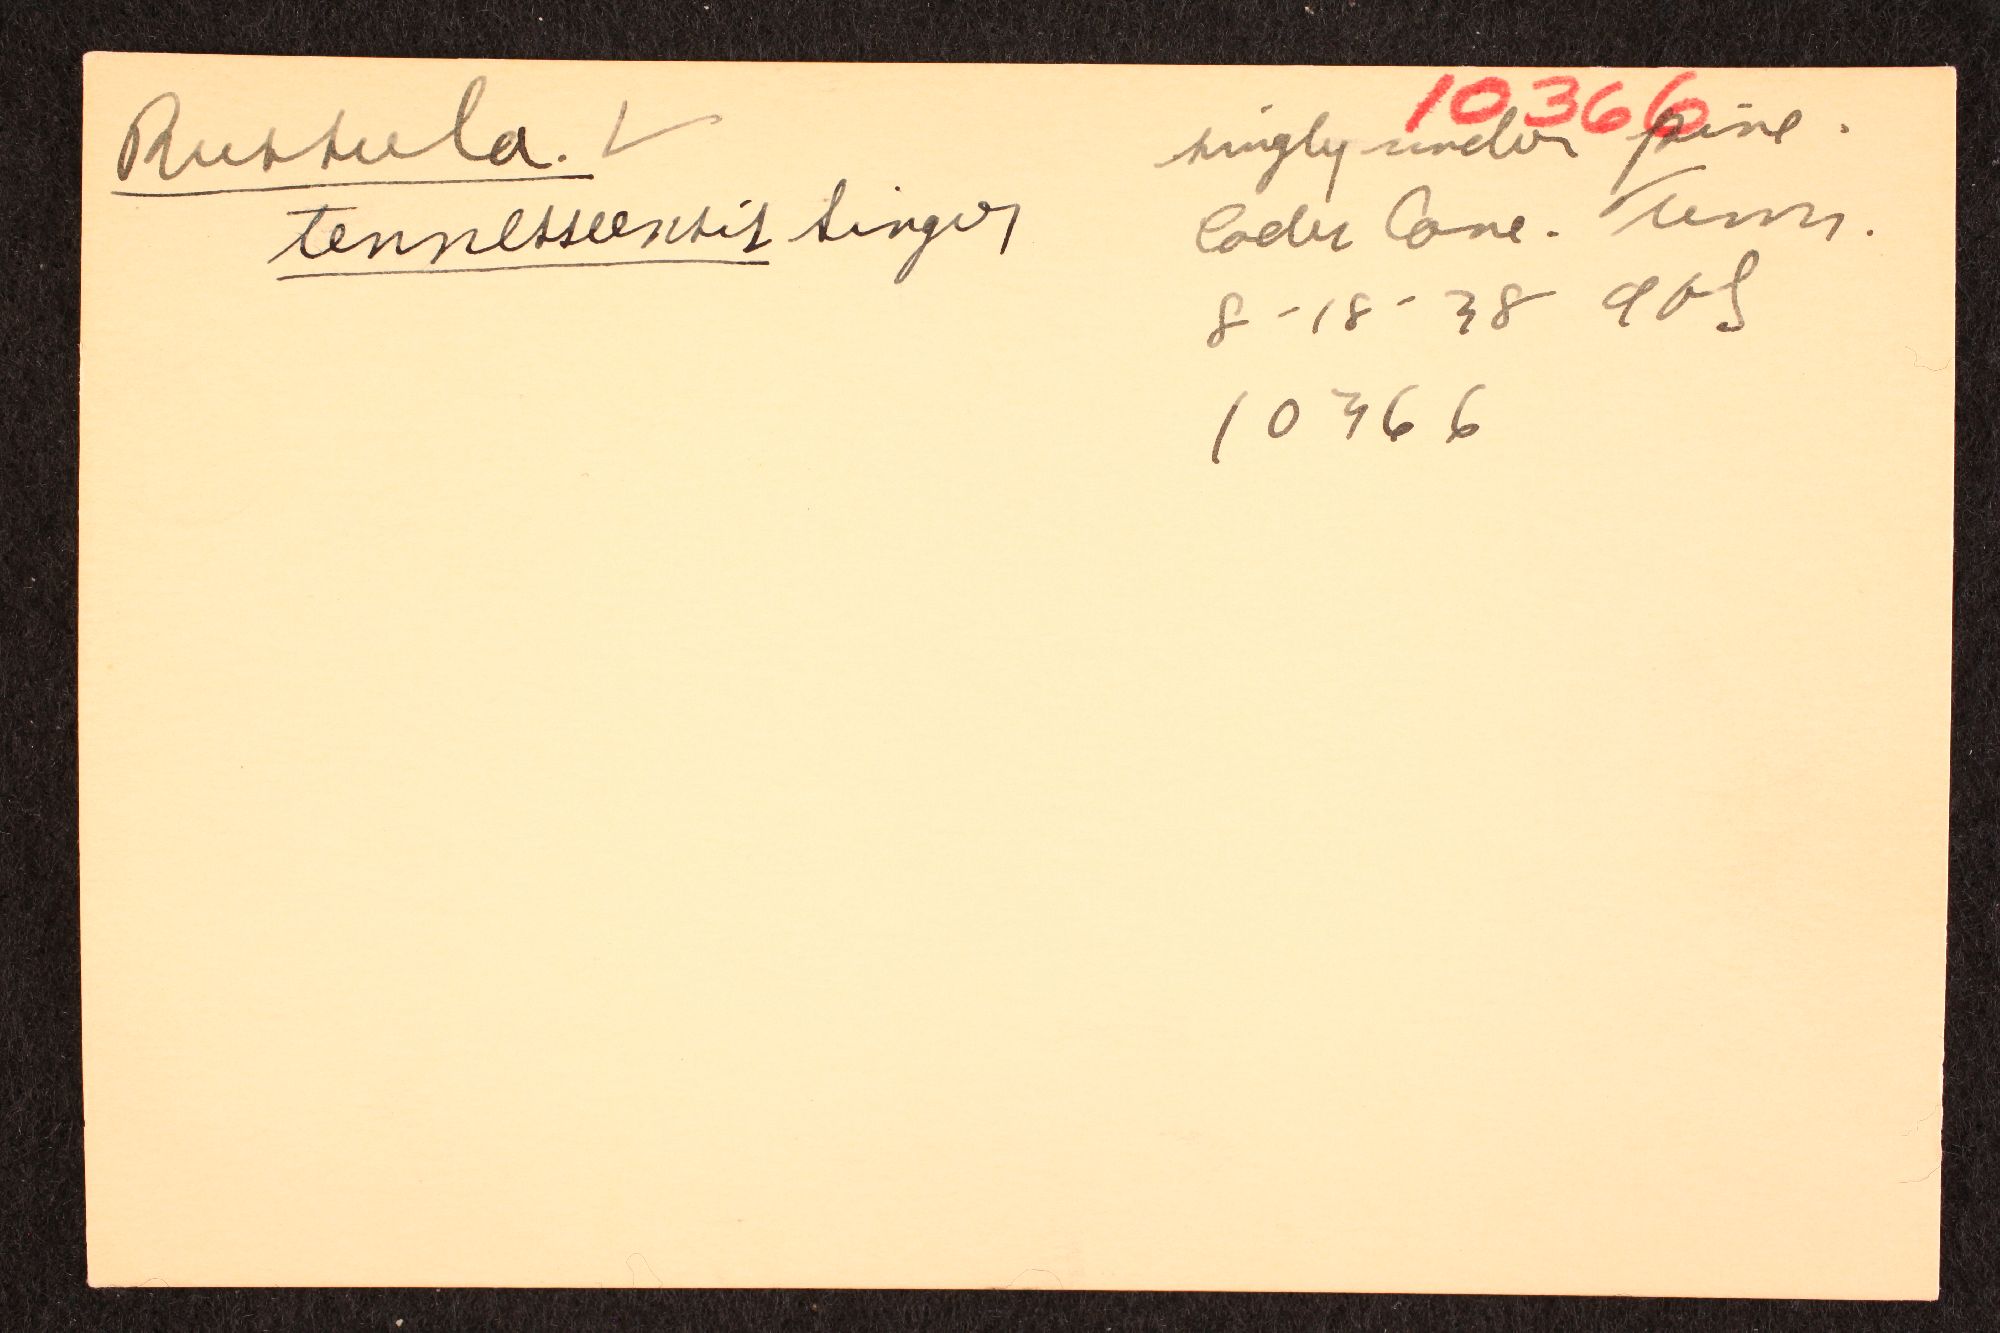 Russula. ✓
tennesseensis Singer
10366
singly under pine.
Cades Cove. Tenn.
8-18-38 AHS
10366